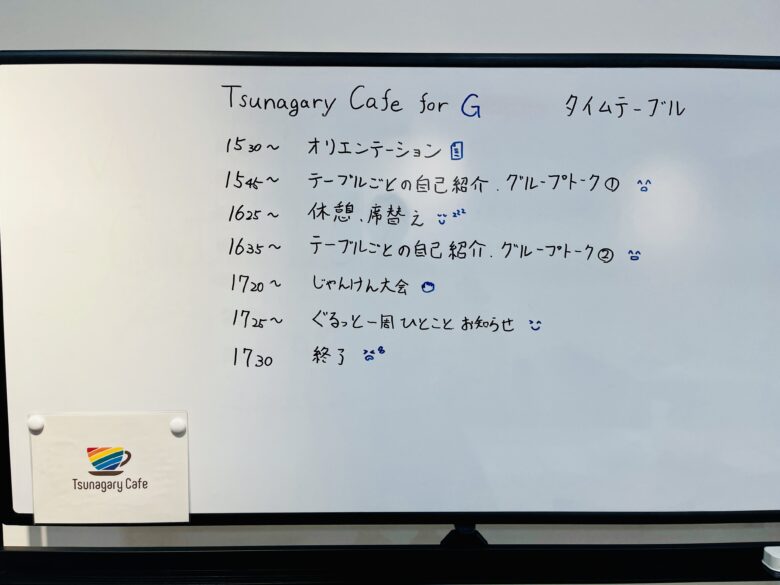 Tsunagary Cafe for G タイムテーブル
1530〜 オリエンテーション
1545〜 テーブルごとの自己紹介、グループトーク①
1625〜 休憩、席替え zzz
1635〜 テーブルごとの自己紹介、グループトーク②
1720〜 じゃんけん大会
1725〜 ぐるっと一周ひとこと お知らせ
1730 終了
Tsunagary Cafe